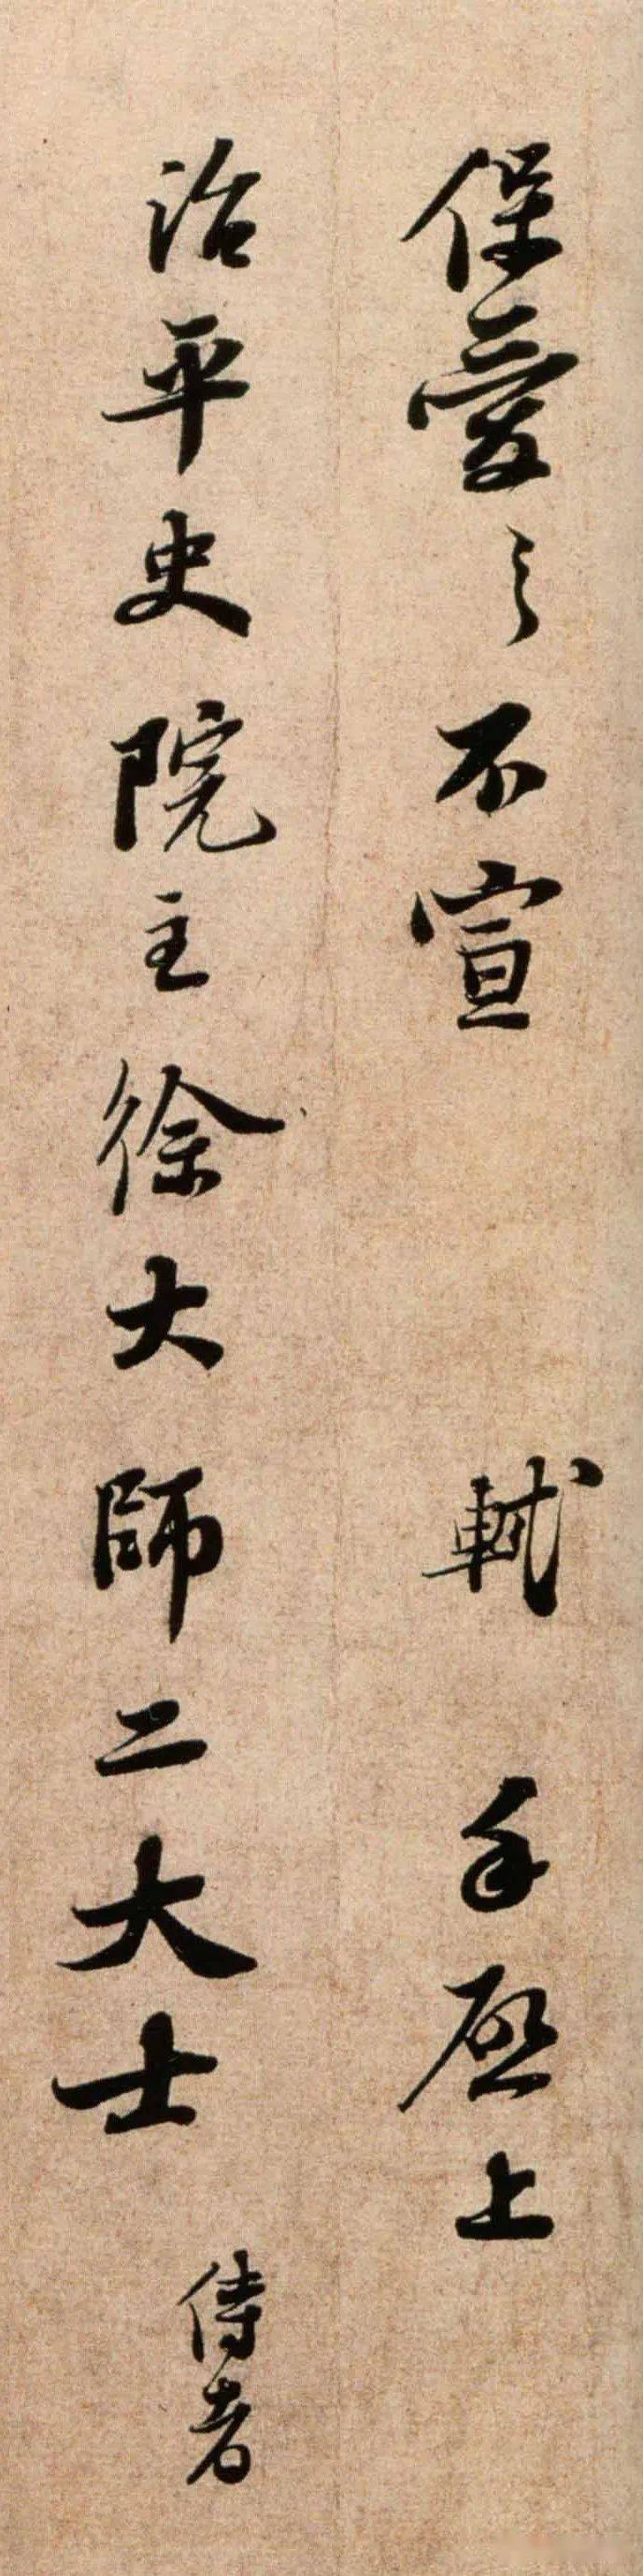 保愛々不宣 軾 手啓上
治平史院主徐大師二大士 侍者